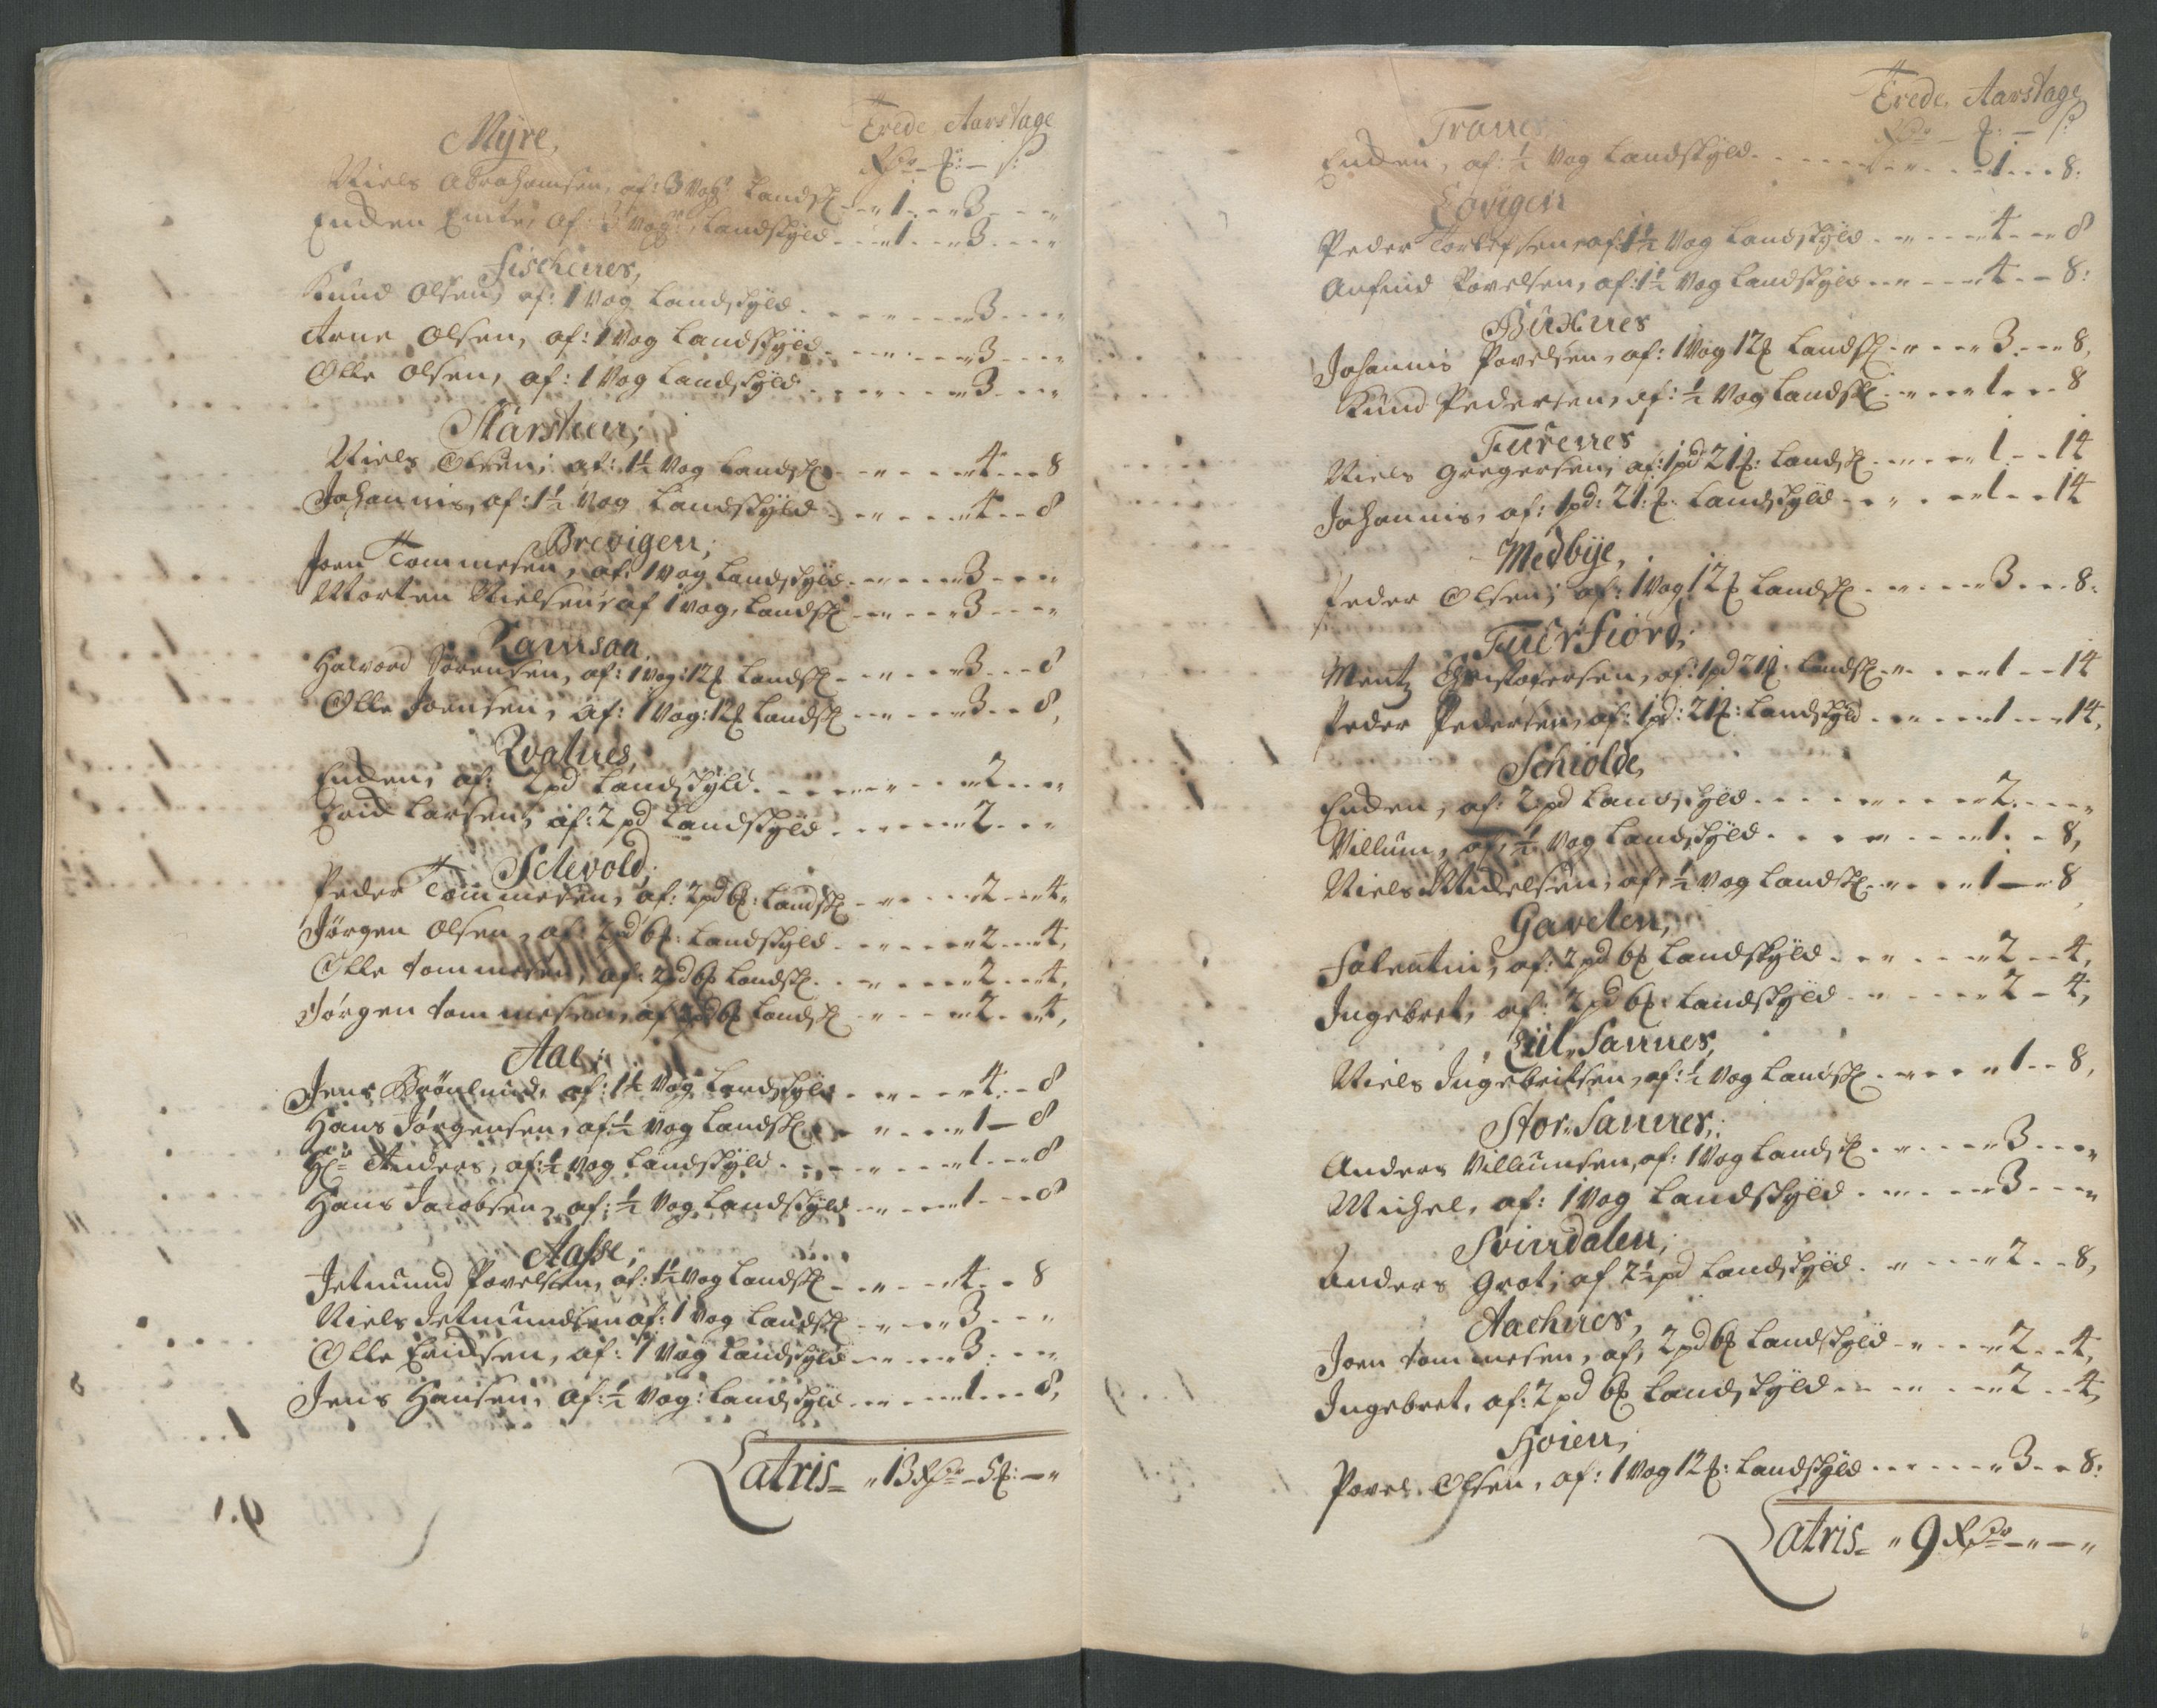 Trede Aarstage
Rdr – ℔: – ß:
Myre,
Niels Abrahamsen, af: 3 Vog: Landsk: – – 1 – – 3 – – "
Encken Emte, af 3 Vog:, Landskyld – – 1 – – 3 – – "
Fischenes,
Knud Olsen, af: 1 Vog Landskyld – – 3 – – "
Arne Olsen, af: 1 Vog Landskyld – – 3 – – "
Olle Olsen, af: 1 Vog Landskyld – – 3 – – "
Starsheen,
Niels Olsen, af: 1½ Vog Landsk: – – 4 – – 8
Johannis, af: 1½ Vog Landskyld – – 4 – – 8
Brevigen,
Joen Tommesen, af: 1 Vog Landskyld – – 3 – – "
Morten Nielsen, af 1 vog, Landsk: – – 3 – – "
Ramsaa,
Halvord Sørensen, af: 1 Vog: 12℔ Landsk: – – 3 – – 8
Olle Joensen, af: 1 Vog: 12℔ Landsk: – – 3 – – 8,
Qvalnes,
Encken, af: 2 pd Landskyld – – 2 – – "
Erick Larsen, af: 2 pd Landskyld – – 2 – – "
Sclevold,
Peder Tommesen, af: 2 pd 6℔: Landsk: – – 2 – – 4,
Jørgen Olsen, af: 2 pd 6℔: Landskyld – – 2 – – 4,
Olle Tommesen, af: 2 pd 6℔ Landsk: – – 2 – – 4,
Jørgen Tommesen, af 2 pd 6℔ Landsk: – – 2 – – 4,
Aae,
Jens Brönlund, af: 1½ Vog Landskyld – – 4 – – 8
Hans Jørgensen, af: ½ Vog Landsk: – – 1 – 8
Hr: Anders, af: ½ Vog Landskyld – – 1 – – 8
Hans Jacobsen, af: ½ Vog Landskyld – – 1 – – 8
Aasse,
Jetmund Povelsen, af: 1½ Vog Landsk: – – 4 – – 8
Niels Jetmundsen af: 1 Vog Landsk: – – 3 – – "
Olle Ericksen, af: 1 Vog Landskyld – – 3 – – "
Jens Hansen, af: ½ Vog: Landskyld – – 1 – – 8,
Latris = " 13 Rdr – 5℔: – "
Trede Aarstage
Rdr – ℔: – ß:
Tranes
Encken, af: ½ Vog Landskyld – – 1 – – 8:
Peder Torlefsen, af: 1½ Vog Landskyld – – 4 – – 8
Anfind Povelsen, af: 1½ Vog Landskyld – – 4 – – 8:
Buxnes
Johannis Povelsen, af: 1 Vog 12℔ Landsk: – – 3 – – 8,
Knud Pedersen, af: ½ Vog Landsk: – – 1 – – 8
Furenes
Niels Gregersen, af: 1 pd 21℔: Landsk: – – 1 – – 14
Johannis, af: 1 pd: 21:℔: Landskyld – – 1 – – 14
Medbÿe,
Peder Olsen, af: 1 Vog 12℔ Landsk: – – 3 – – 8:
Fuerfiord,
Mentz Christofersen, af: 1 pd 21℔: Landsk: – – 1 – – 14
Peder Pedersen, af: 1 pd: 21℔: Landskyld – – 1 – – 14,
Schiolde,
Encken, af: 2 pd Landskyld – – 2 – – "
Villum, af: ½ Vog Landskyld – – 1 – – 8,
Niels Michelsen, af: ½ Vog Landsk: – – 1 – – 8,
Gavelen,
Falentin, af: 2 pd 6℔ Landskyld – – 2 – – 4,
Ingebret, af: 2 pd 6℔: Landskyld – – 2 – 4,
Lill Sannes,
Niels Ingebritsen, af: ½ Vog Landsk: – – 1 – – 8,
Stor Sannes,
Anders Villumsen, af: 1 Vog Landsk: – – 3 – – "
Michel, af: 1 Vog Landskyld – – 3 – – "
Svindalen,
Anders Grot, af 2½ pd Landskyld – – 2 – – 8,
Aachnes,
Joen Tommesen, af: 2 pd 6℔ Landskyld – – 2 – – 4,
Ingebret, af: 2 pd 6℔ Landskyld – – 2 – – 4,
Høien,
Povel Olsen, af: 1 Vog 12℔: Landskyld – – 3 – – 8:
Latris = " 9 Rdr – " – "
6